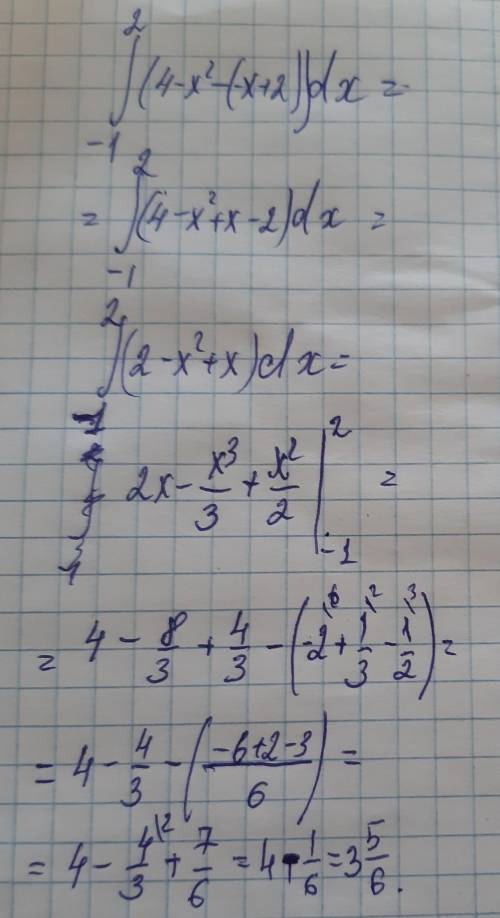 ∫_{-1}^{2} (4-x²-(-x+2))dx =
= ∫_{-1}^{2} (4-x²+x-2)dx =
∫^{2} (2-x²+x)dx =
2x - x³/3 + x²/2 |_{-1}^{2} =
= 4 - 8/3 + 4/3 - (-2\⁶ + 1\²/3 - 1\³/2) =
= 4 - 4/3 - ((-6+2-3)/6) =
= 4 - 4\²/3 + 7/6 = 4 - 1/6 = 3 5/6.